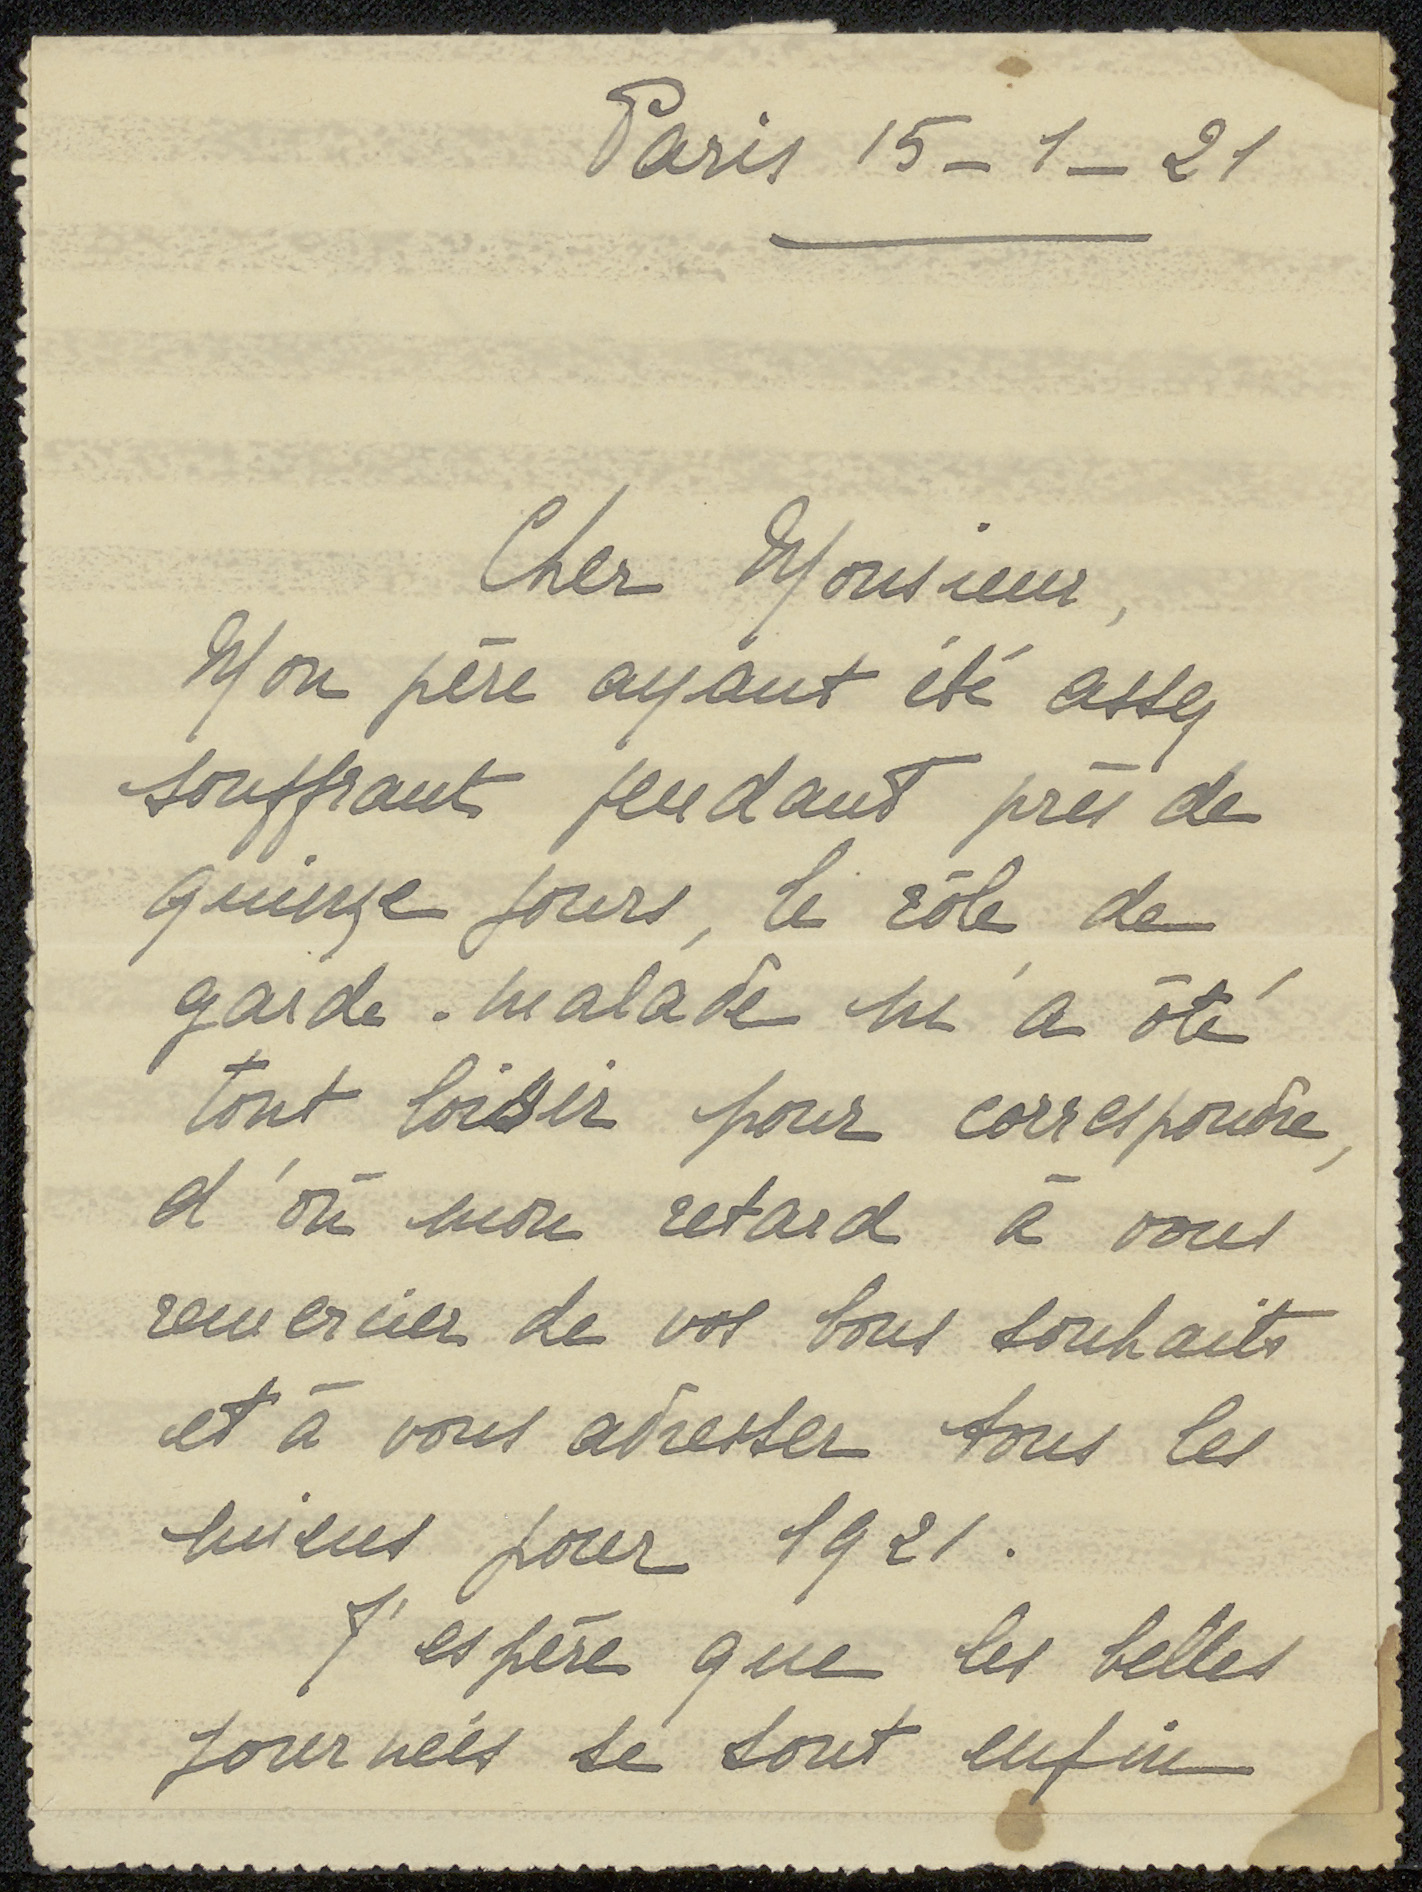 Paris 15-1-21
Cher Monsieur,
Mon père ayant été assez
souffrant pendant près de
quinze jours, le rôle de
garde-malade m'a ôté
tout loisir pour correspondre,
d'où mon retard à vous
remercier de vos bons souhaits
et à vous adresser tous les
miens pour 1921.
J'espère que les belles
journées se sont enfin